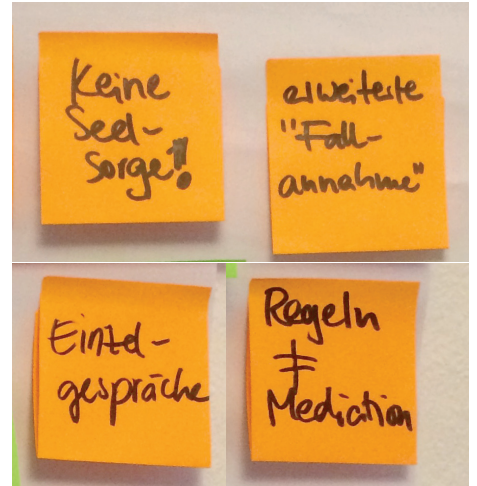 Keine
Seel-
sorge!
erweiterte
"Fall-
annahme"
Einzel-
gespräche
Regeln
≠
Mediation